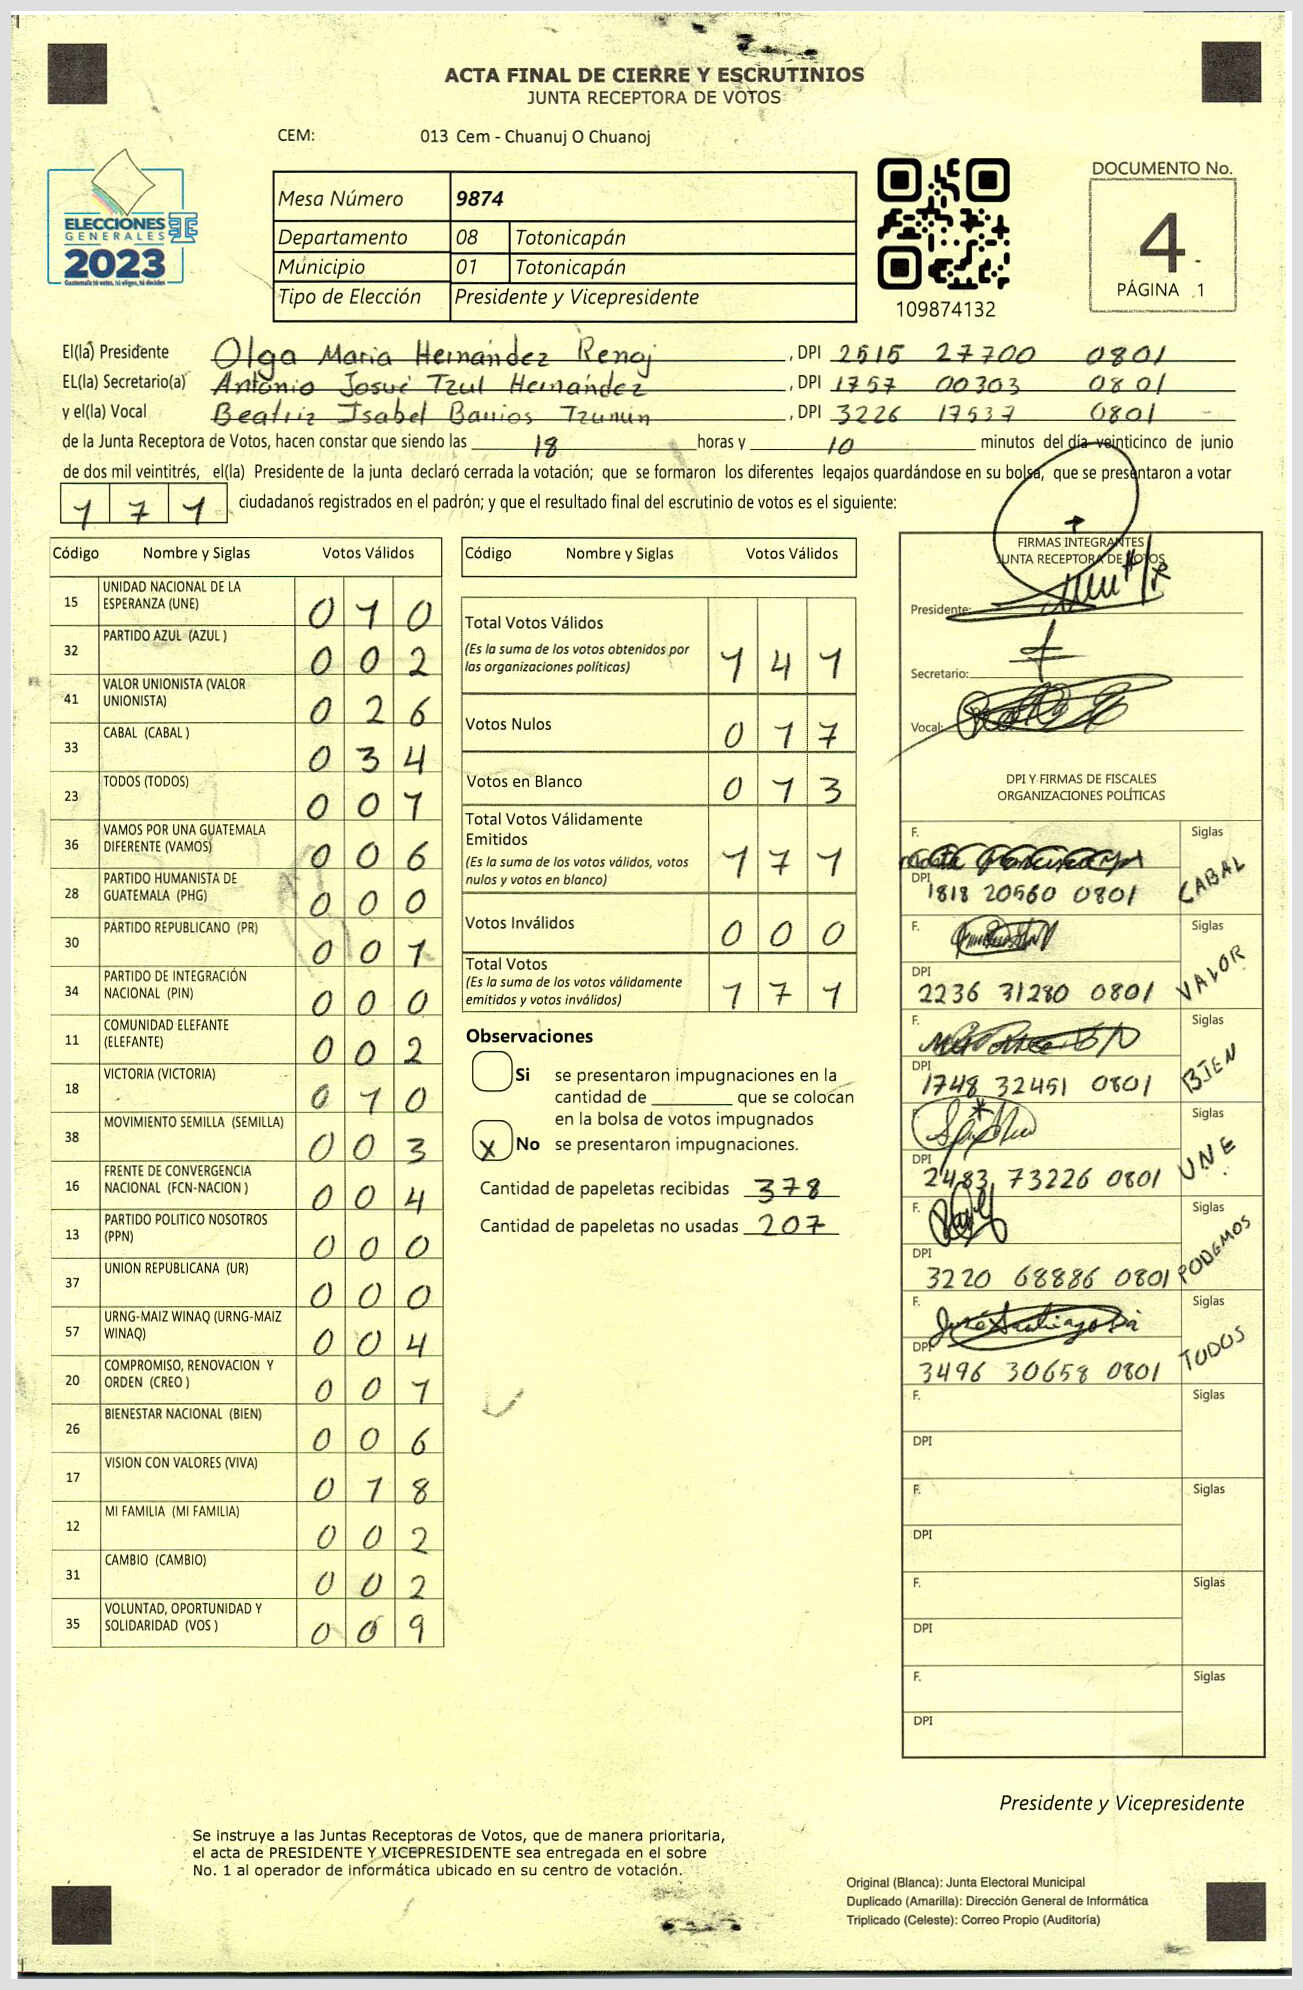 ACTA FINAL DE CIERRE Y ESCRUTINIOS
JUNTA RECEPTORA DE VOTOS
CEM: 013 Cem - Chuanuj O Chuanoj
ELECCIONES
GENERALES
2023
Mesa Número 9874
Departamento 08 Totonicapán
Municipio 01 Totonicapán
Tipo de Elección Presidente y Vicepresidente
109874132
DOCUMENTO No.
4
PÁGINA 1
El(la) Presidente Olga Maria Hernández Renoj, DPI 2515 27700 0801
EL(la) Secretario(a) Antonio Josué Tzul Hernández, DPI 1757 00303 0801
y el(la) Vocal Beatriz Isabel Barrios Tzunun, DPI 3226 17537 0801
de la Junta Receptora de Votos, hacen constar que siendo las 18 horas y 10 minutos del día veinticinco de junio
de dos mil veintitrés, el(la) Presidente de la junta declaró cerrada la votación; que se formaron los diferentes legajos guardándose en su bolsa, que se presentaron a votar
171 ciudadanos registrados en el padrón; y que el resultado final del escrutinio de votos es el siguiente:
Código Nombre y Siglas Votos Válidos
15 UNIDAD NACIONAL DE LA ESPERANZA (UNE) 010
32 PARTIDO AZUL (AZUL ) 002
41 VALOR UNIONISTA (VALOR UNIONISTA) 026
33 CABAL (CABAL ) 034
23 TODOS (TODOS) 001
36 VAMOS POR UNA GUATEMALA DIFERENTE (VAMOS) 006
28 PARTIDO HUMANISTA DE GUATEMALA (PHG) 000
30 PARTIDO REPUBLICANO (PR) 001
34 PARTIDO DE INTEGRACIÓN NACIONAL (PIN) 000
11 COMUNIDAD ELEFANTE (ELEFANTE) 002
18 VICTORIA (VICTORIA) 010
38 MOVIMIENTO SEMILLA (SEMILLA) 003
16 FRENTE DE CONVERGENCIA NACIONAL (FCN-NACION ) 004
13 PARTIDO POLITICO NOSOTROS (PPN) 000
37 UNION REPUBLICANA (UR) 000
57 URNG-MAIZ WINAQ (URNG-MAIZ WINAQ) 004
20 COMPROMISO, RENOVACION Y ORDEN (CREO ) 001
26 BIENESTAR NACIONAL (BIEN) 006
17 VISION CON VALORES (VIVA) 018
12 MI FAMILIA (MI FAMILIA) 002
31 CAMBIO (CAMBIO) 002
35 VOLUNTAD, OPORTUNIDAD Y SOLIDARIDAD (VOS ) 009
Código Nombre y Siglas Votos Válidos
Total Votos Válidos 141
(Es la suma de los votos obtenidos por
las organizaciones políticas)
Votos Nulos 017
Votos en Blanco 013
Total Votos Válidamente
Emitidos 171
(Es la suma de los votos válidos, votos
nulos y votos en blanco)
Votos Inválidos 000
Total Votos 171
(Es la suma de los votos válidamente
emitidos y votos inválidos)
Observaciones
Si se presentaron impugnaciones en la
cantidad de ________ que se colocan
en la bolsa de votos impugnados
X No se presentaron impugnaciones.
Cantidad de papeletas recibidas 378
Cantidad de papeletas no usadas 207
FIRMAS INTEGRANTES
JUNTA RECEPTORA DE VOTOS
Presidente:
Secretario:
Vocal:
DPI Y FIRMAS DE FISCALES
ORGANIZACIONES POLÍTICAS
F. Siglas
DPI 1818 20560 0801 CABAL
F. Siglas
DPI 2236 31280 0801 VALOR
F. Siglas
DPI 1748 32451 0801 BIEN
F. Siglas
DPI 2483 73226 0801 UNE
F. Siglas
DPI 3220 68886 0801 PODEMOS
F. Siglas
DPI 3496 30658 0801 TODOS
F. Siglas
DPI
F. Siglas
DPI
F. Siglas
DPI
F. Siglas
DPI
Presidente y Vicepresidente
Se instruye a las Juntas Receptoras de Votos, que de manera prioritaria,
el acta de PRESIDENTE Y VICEPRESIDENTE sea entregada en el sobre
No. 1 al operador de informática ubicado en su centro de votación.
Original (Blanca): Junta Electoral Municipal
Duplicado (Amarilla): Dirección General de Informática
Triplicado (Celeste): Correo Propio (Auditoría)